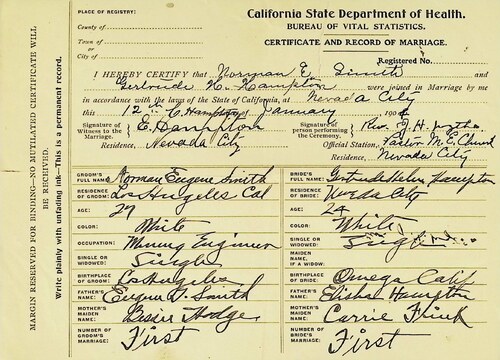 MARGIN RESERVED FOR BINDING—NO MUTILATED CERTIFICATE WILL
BE RECEIVED.
Write plainly with unfading ink—This is a permanent record.
PLACE OF REGISTRY:
County of
Town of
or
City of
California State Department of Health.
BUREAU OF VITAL STATISTICS.
CERTIFICATE AND RECORD OF MARRIAGE.
Registered No.
I HEREBY CERTIFY that Norman E. Smith and
Gertrude H. Hampton were joined in Marriage by me
in accordance with the laws of the State of California, at Nevada City
this 12th January 190
Signature of Witness to the Marriage E. Hampton
Signature of person performing the Ceremony. Rev. H.
Residence, Nevada City
Official Station, Pastor M. E. Church
Residence, Nevada City
GROOM'S FULL NAME Norman Eugene Smith
BRIDE'S FULL NAME: Gertrude Helen Hampton
RESIDENCE OF GROOM: Los Angeles Cal
RESIDENCE OF BRIDE: Nevada City
AGE: 29
AGE: 24
COLOR: White
COLOR: White
OCCUPATION: Mining Engineer
SINGLE OR WIDOWED: Single
SINGLE OR WIDOWED: Single
MAIDEN NAME, IF A WIDOW:
BIRTHPLACE OF GROOM: Los Angeles
BIRTHPLACE OF BRIDE: Omega Cal
FATHER'S NAME: Eugene D. Smith
FATHER'S NAME: Elisha Hampton
MOTHER'S MAIDEN NAME: Bessie Hodge
MOTHER'S MAIDEN NAME: Carrie
NUMBER OF GROOM'S MARRIAGE: First
NUMBER OF BRIDE'S MARRIAGE: First